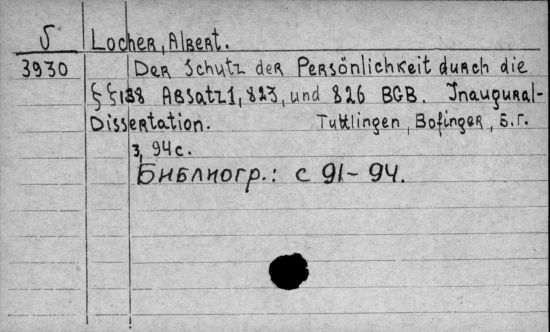 S
3930
Locher, Albert.
Der Schutz der Persönlichkeit durch die
§§138 Absatz1, 823, und 826 BGB. Inaugural-
Dissertation. Tuttlingen, Bofinger, б.г.
3, 94 с.
Библиогр.: с 91-94.